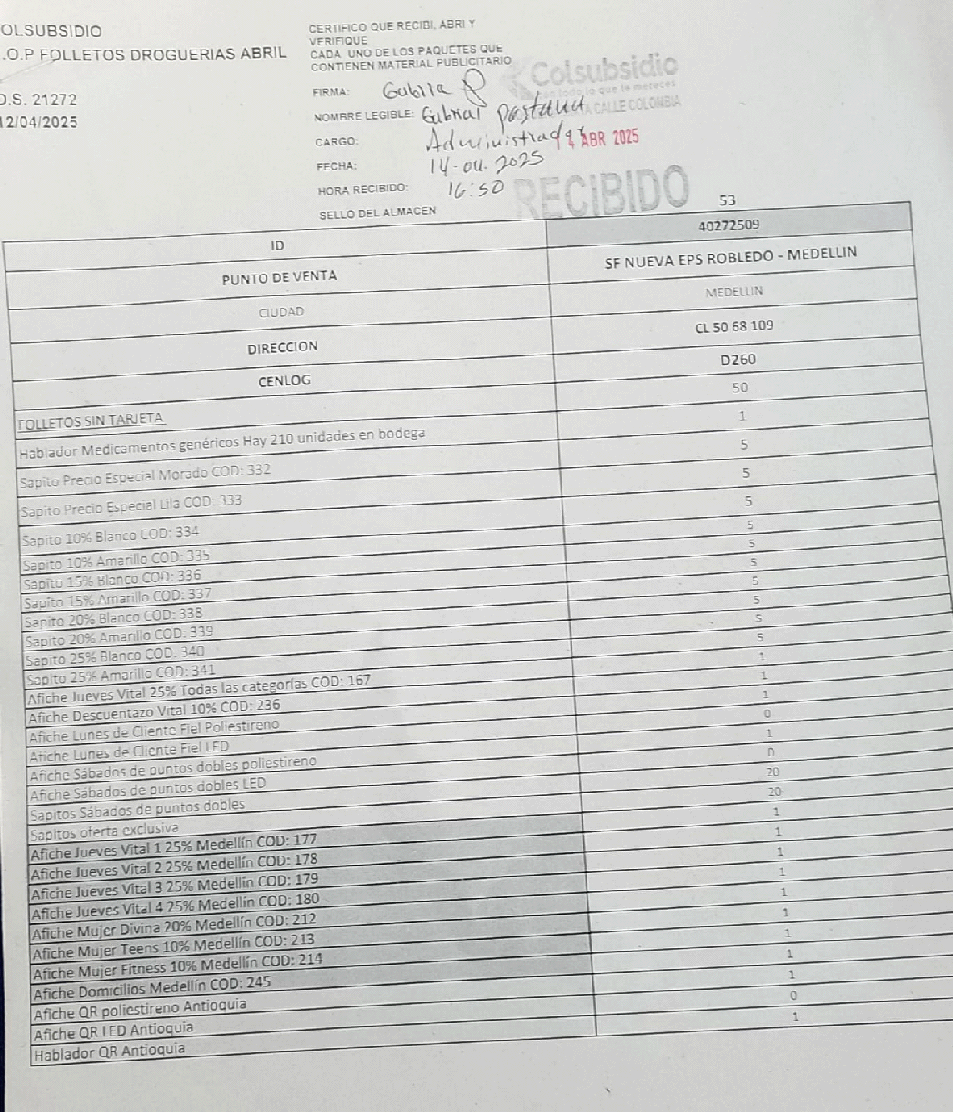 OLSUBSIDIO
.O.P FOLLETOS DROGUERIAS ABRIL
O.S. 21272
12/04/2025
CERTIFICO QUE RECIBI, ABRI Y
VERIFIQUE
CADA UNO DE LOS PAQUETES QUE
CONTIENEN MATERIAL PUBLICITARIO
FIRMA:
NOMBRE LEGIBLE: Gabriel Pastana
CARGO: Administrador
FECHA: 14-04-2025
HORA RECIBIDO: 16:50
SELLO DEL ALMACEN
Colsubsidio
todo lo que te mereces
CALLE COLOMBIA
ABR 2025
RECIBIDO
53
ID 40272509
PUNTO DE VENTA SF NUEVA EPS ROBLEDO - MEDELLIN
CIUDAD MEDELLIN
DIRECCION CL 50 68 109
CENLOG D260
FOLLETOS SIN TARJETA 50
Hablador Medicamentos genéricos Hay 210 unidades en bodega 1
Sapito Precio Especial Morado COD: 332 5
Sapito Precio Especial Lila COD: 333 5
Sapito 10% Blanco COD: 334 5
Sapito 10% Amarillo COD: 335 5
Sapito 15% Blanco COD: 336 5
Sapito 15% Amarillo COD: 337 5
Sapito 20% Blanco COD: 338 5
Sapito 20% Amarillo COD: 339 5
Sapito 25% Blanco COD: 340 5
Sapito 25% Amarillo COD: 341 5
Afiche Jueves Vital 25% Todas las categorías COD: 167 1
Afiche Descuentazo Vital 10% COD: 236 1
Afiche Lunes de Cliente Fiel Poliestireno 1
Afiche Lunes de Cliente Fiel LED 0
Afiche Sábados de puntos dobles poliestireno 1
Afiche Sábados de puntos dobles LED 0
Sapitos Sábados de puntos dobles 20
Sapitos oferta exclusiva 20
Afiche Jueves Vital 1 25% Medellín COD: 177 1
Afiche Jueves Vital 2 25% Medellín COD: 178 1
Afiche Jueves Vital 3 25% Medellín COD: 179 1
Afiche Jueves Vital 4 25% Medellín COD: 180 1
Afiche Mujer Divina 20% Medellín COD: 212 1
Afiche Mujer Teens 10% Medellín COD: 213 1
Afiche Mujer Fitness 10% Medellín COD: 214 1
Afiche Domicilios Medellín COD: 245 1
Afiche QR poliestireno Antioquia 1
Afiche QR LED Antioquia 0
Hablador QR Antioquia 1